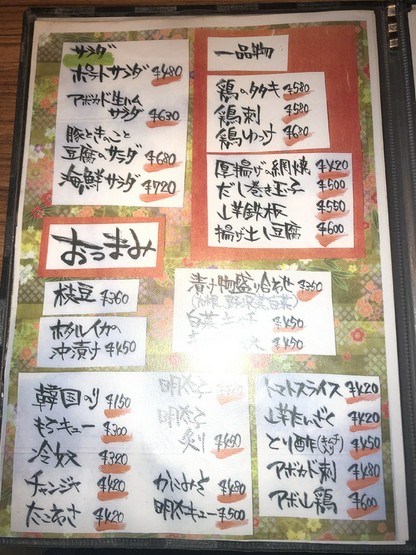 サラダ
ポテトサラダ ¥480
アボカド生ハム
サラダ ¥630
豚ときのこと
豆腐のサラダ ¥680
海鮮サラダ ¥720
一品物
鶏のタタキ ¥580
鶏刺 ¥580
鶏ゆっけ ¥680
厚揚げの網焼 ¥420
だし巻き玉子 ¥500
山芋鉄板 ¥550
揚げ出し豆腐 ¥600
おつまみ
枝豆 ¥360
ホタルイカ
沖漬け ¥450
漬け物盛り合わせ ¥350
白菜キムチ ¥450
¥450
韓国のり ¥150
もろキュー ¥300
冷奴 ¥320
チャンジャ ¥420
たこわさ ¥420
明太子
明太子
炙り ¥450
かにみそ ¥480
明太キュー ¥500
トマトスライス ¥420
山芋たんざく ¥420
とり酢 ¥450
アボカド刺 ¥480
アボ山鶏 ¥600